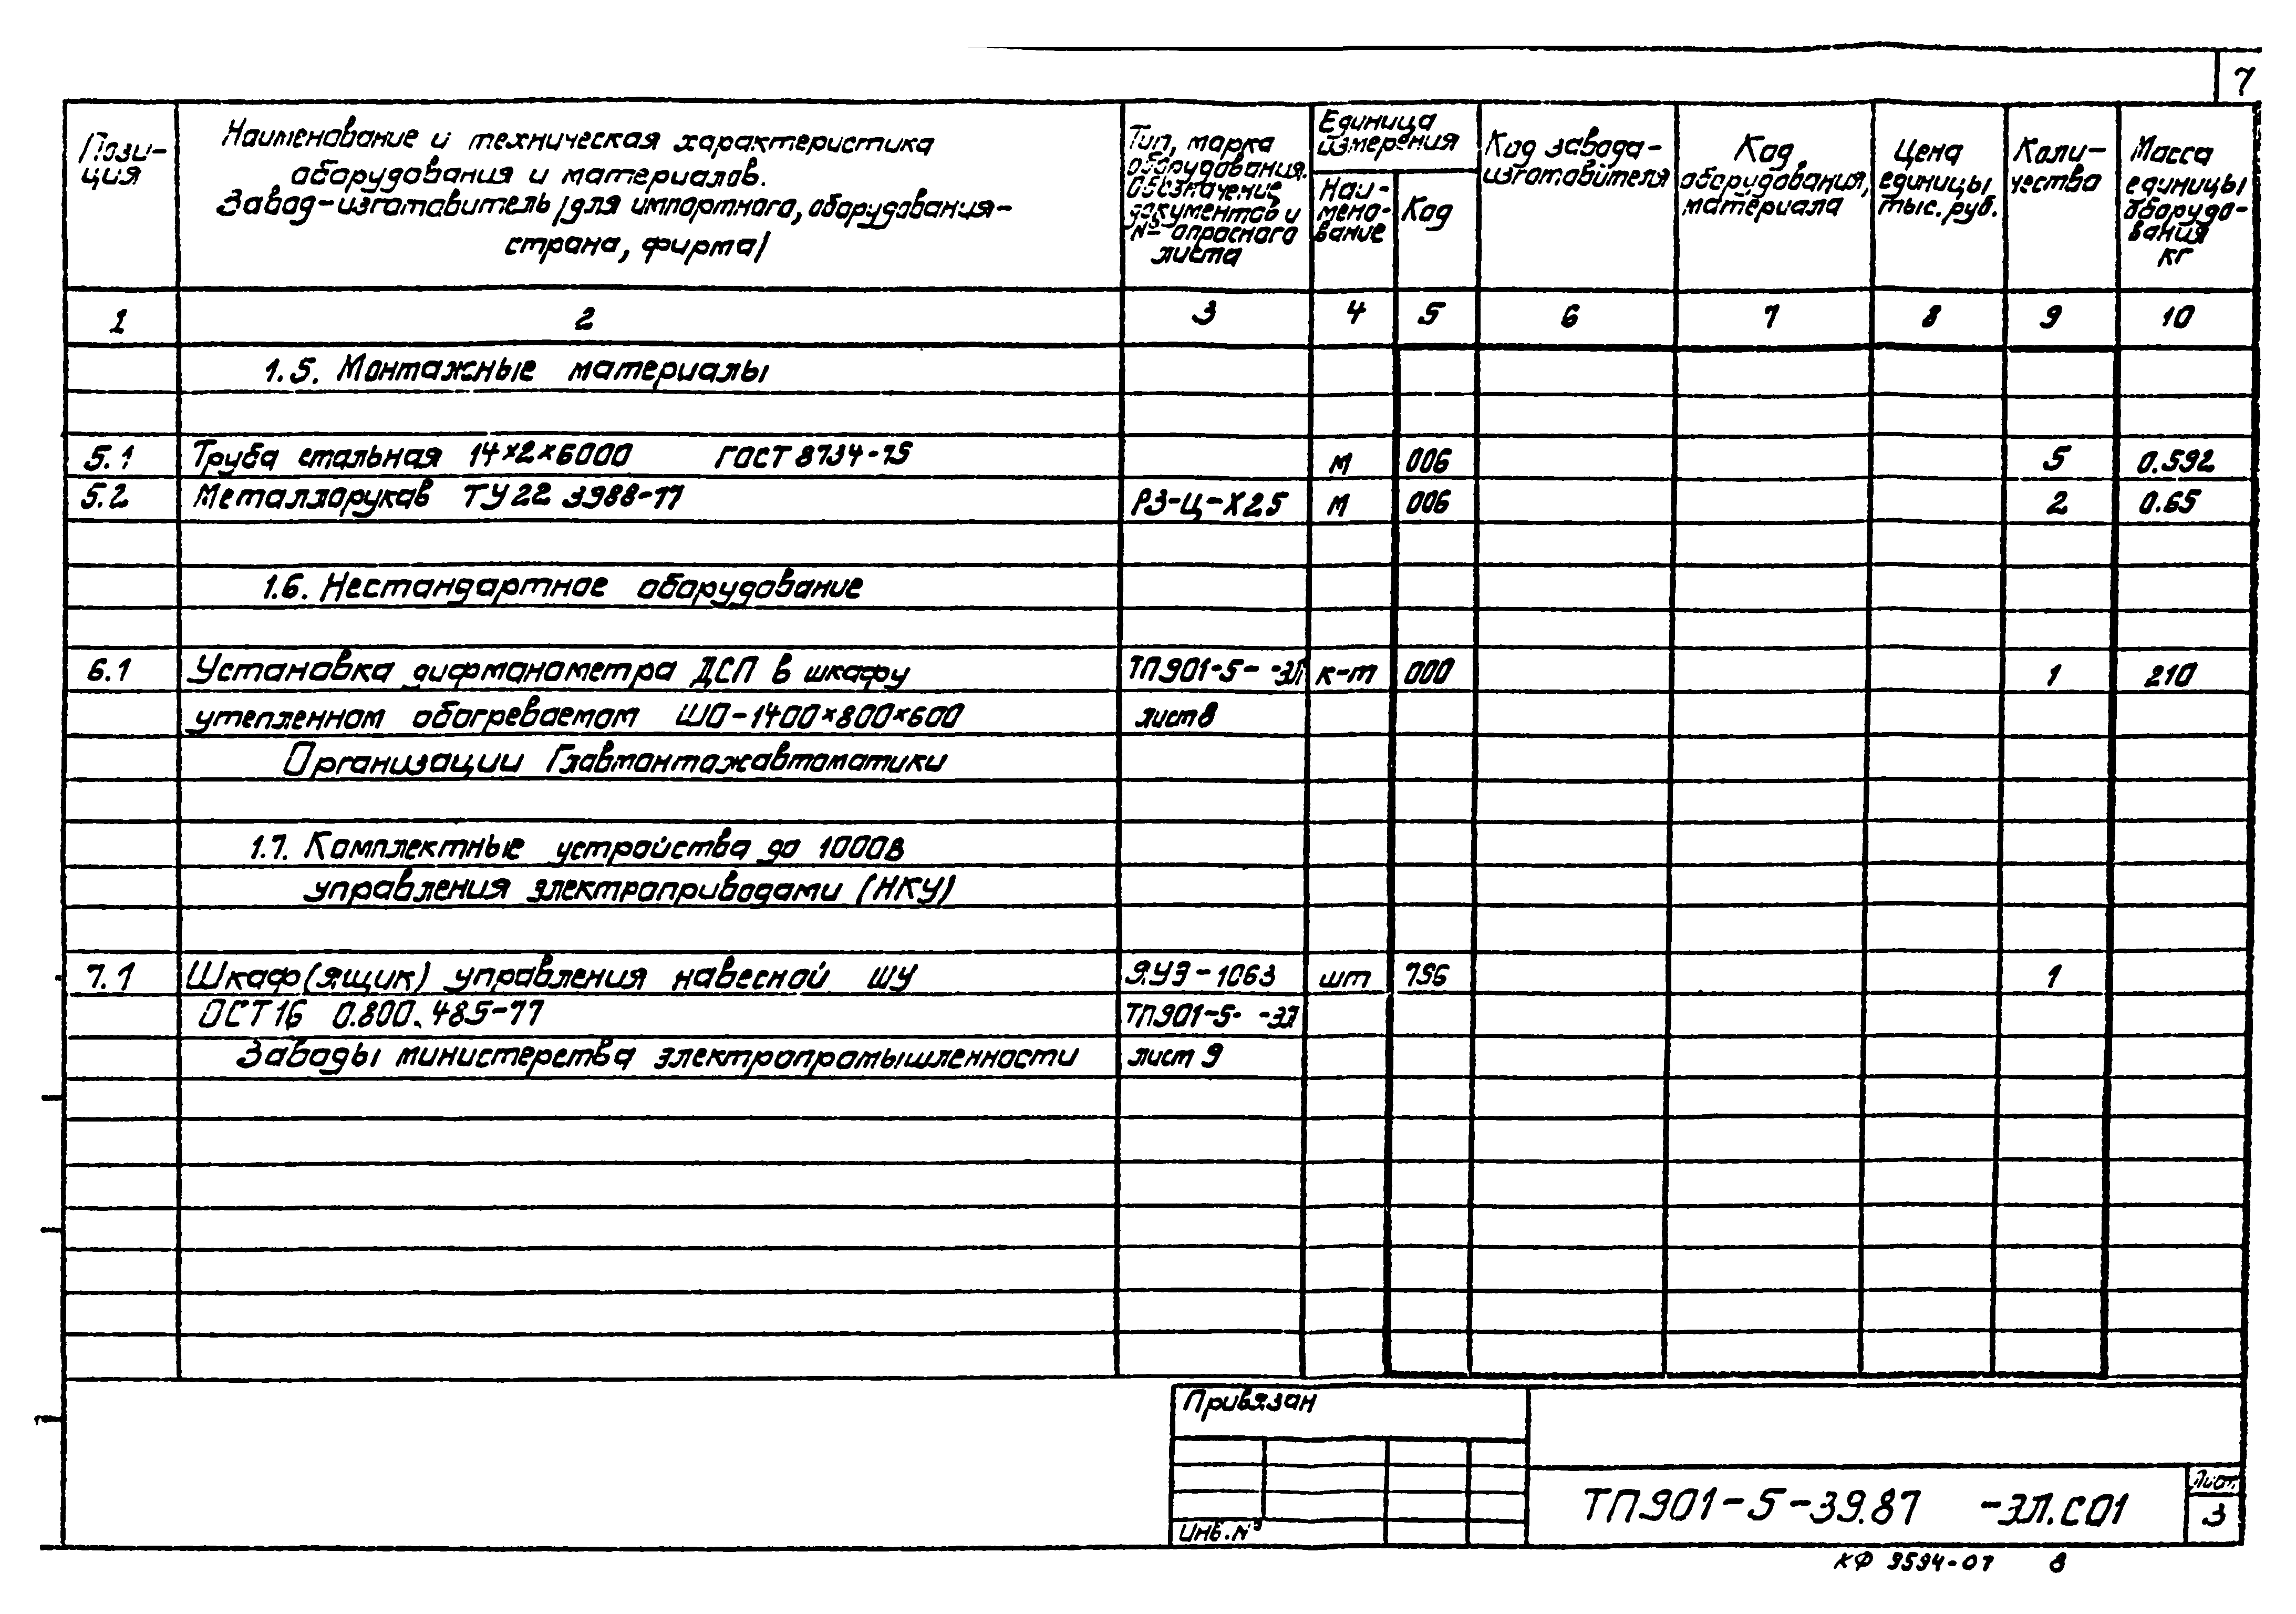 7
Пози-
ция
Наименование и техническая характеристика
оборудования и материалов.
Завод-изготовитель /для импортного, оборудования-
страна, фирма/
Тип, марка
оборудования.
Обозначение
документов и
№ опросного
листа
Единица
измерения
Наи-
мено-
вание
Код
Код завода-
изготовителя
Код
оборудования,
материала
Цена
единицы
тыс. руб.
Коли-
чество
Масса
единицы
оборудо-
вания
кг
1 2 3 4 5 6 7 8 9 10
1.5. Монтажные материалы
5.1 Труба стальная 14×2×6000 ГОСТ 8734-75 м 006 5 0.592
5.2 Металлорукав ТУ 22 3988-77 РЗ-Ц-Х25 м 006 2 0.65
1.6. Нестандартное оборудование
6.1 Установка дифманометра ДСП в шкафу ТП901-5- -ЭЛ к-т 000 1 210
утепленном обогреваемом ШО-1400×800×600 лист 8
Организации Главмонтажавтоматики
1.7. Комплектные устройства до 1000В
управления электроприводами (НКУ)
7.1 Шкаф (ящик) управления навесной ШУ ЯУЭ-1063 шт 796 1
ОСТ 16 0.800.485-77 ТП901-5- -ЭЛ
Заводы министерства электропромышленности лист 9
Привязан
Инв.№
ТП901-5-39.87 -ЭЛ.СО1
Лист
3
КФ 9594-07 8